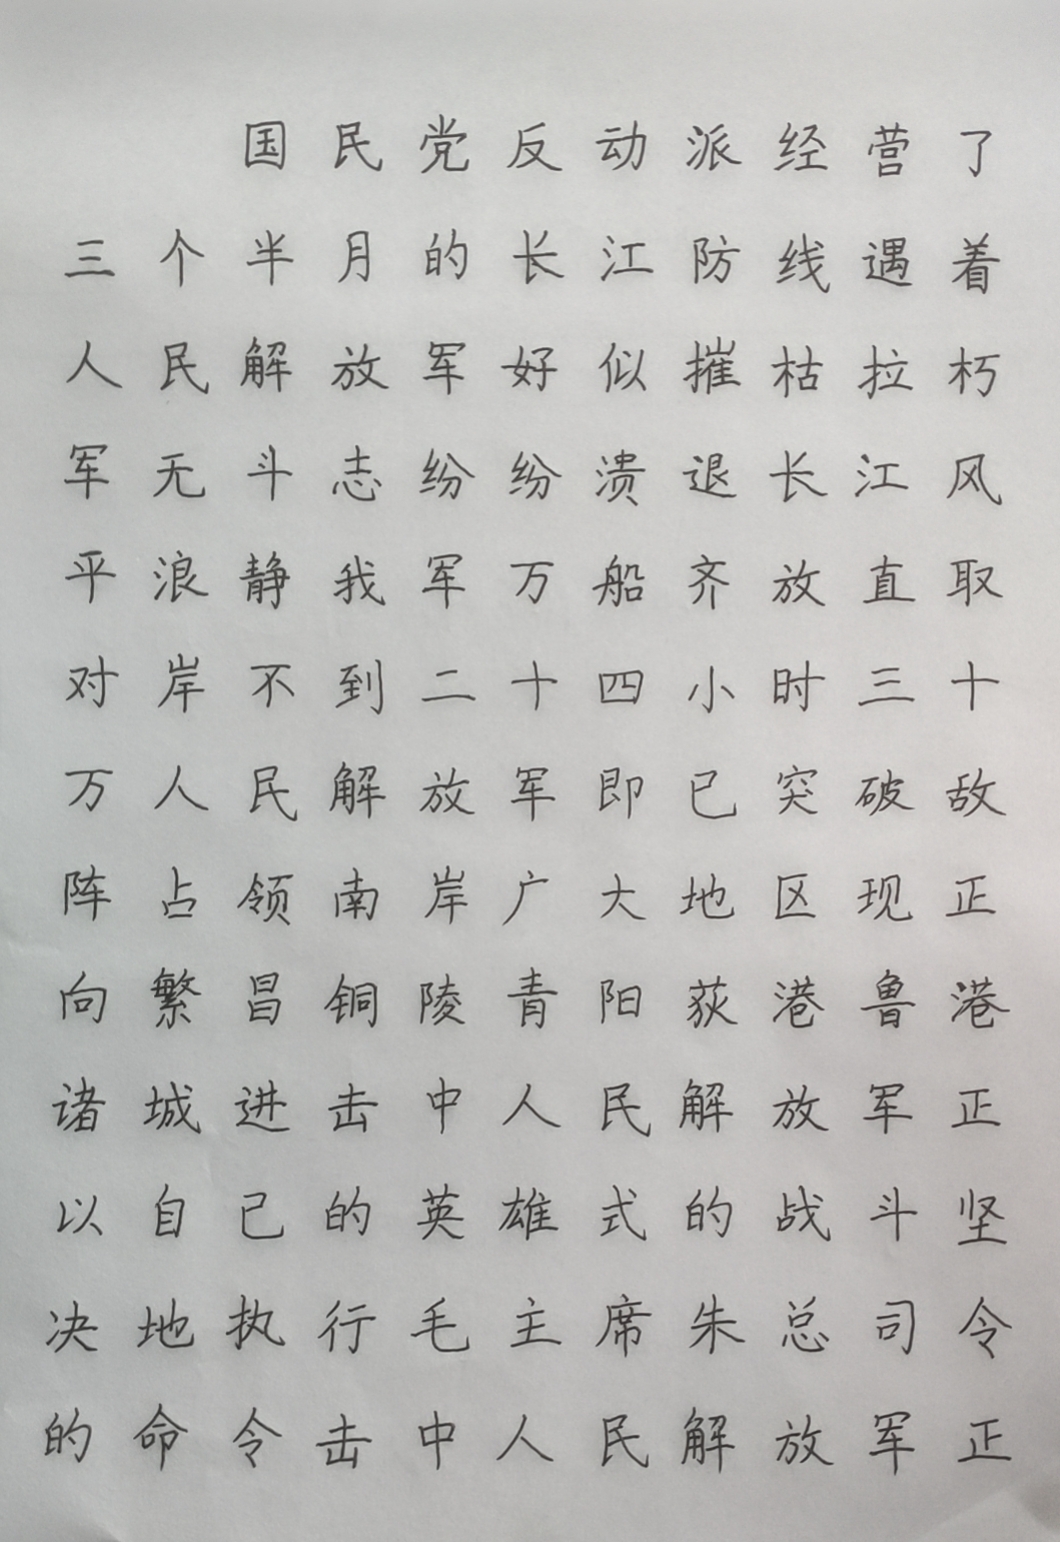 国民党反动派经营了
三个半月的长江防线遇着
人民解放军好似摧枯拉朽
军无斗志纷纷溃退长江风
平浪静我军万船齐放直取
对岸不到二十四小时三十
万人民解放军即已突破敌
阵占领南岸广大地区现正
向繁昌铜陵青阳荻港鲁港
诸城进击中人民解放军正
以自己的英雄式的战斗坚
决地执行毛主席朱总司令
的命令击中人民解放军正